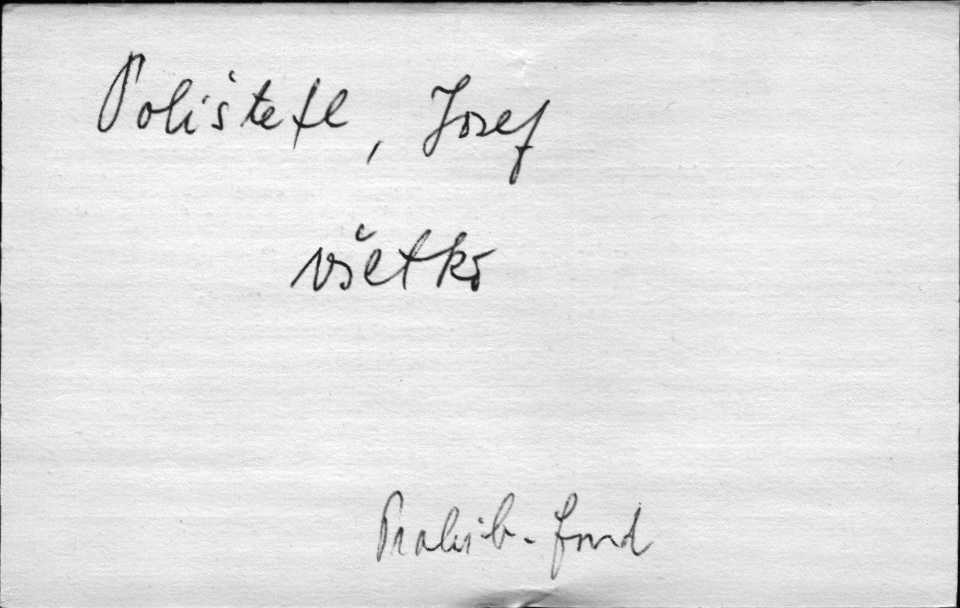 Polištefl, Josef
všetko
Prohib. fond